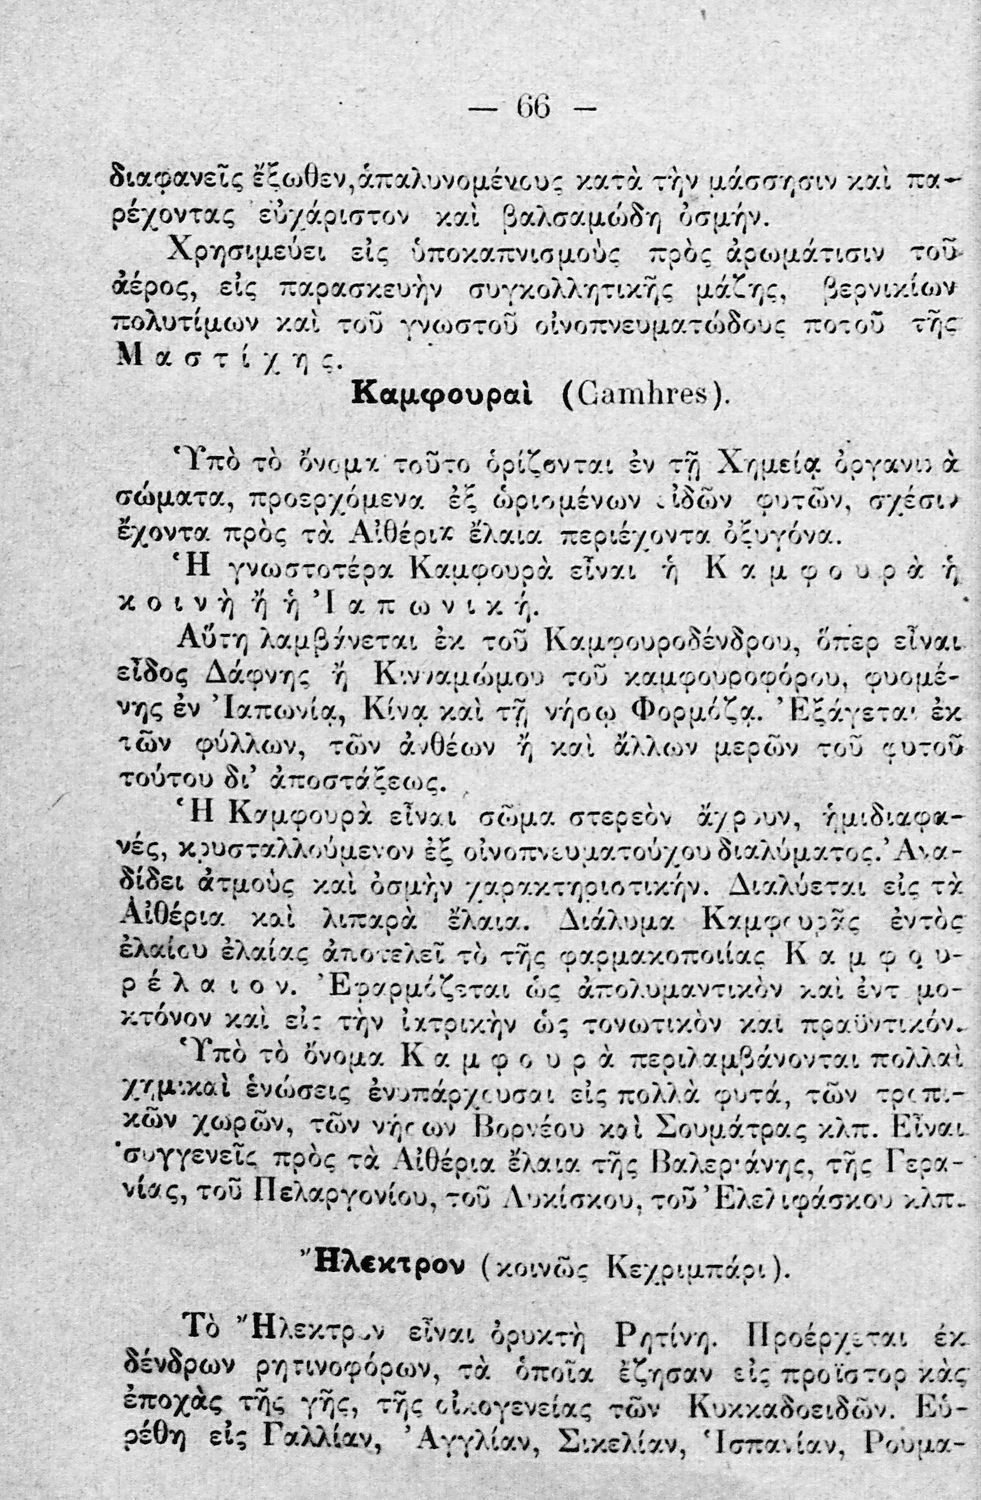 — 66 —
διαφανεῖς ἔξωθεν, ἁπαλυνομένους κατὰ τὴν μάσσησιν καὶ πα-
ρέχοντας εὐχάριστον καὶ βαλσαμώδη ὀσμήν.
Χρησιμεύει εἰς ὑποκαπνισμοὺς πρὸς ἀρωμάτισιν τοῦ
ἀέρος, εἰς παρασκευὴν συγκολλητικῆς μάζης, βερνικίων
πολυτίμων καὶ τοῦ γνωστοῦ οἰνοπνευματώδους ποτοῦ τῆς
Μαστίχης.
Καμφουραὶ (Camhres).
Ὑπὸ τὸ ὄνομα τοῦτο ὁρίζονται ἐν τῇ Χημείᾳ ὀργανικὰ
σώματα, προερχόμενα ἐξ ὡρισμένων εἰδῶν φυτῶν, σχέσιν
ἔχοντα πρὸς τὰ Αἰθέρια ἔλαια περιέχοντα ὀξυγόνα.
Ἡ γνωστοτέρα Καμφουρὰ εἶναι ἡ Καμφουρὰ ἡ
κοινὴ ἢ ἡ Ἰαπωνική.
Αὕτη λαμβάνεται ἐκ τοῦ Καμφουροδένδρου, ὅπερ εἶναι
εἶδος Δάφνης ἢ Κινναμώμου τοῦ καμφουροφόρου, φυομέ-
νης ἐν Ἰαπωνίᾳ, Κίνᾳ καὶ τῇ νήσῳ Φορμόζᾳ. Ἐξάγεται ἐκ
τῶν φύλλων, τῶν ἀνθέων ἢ καὶ ἄλλων μερῶν τοῦ φυτοῦ
τούτου δι' ἀποστάξεως.
Ἡ Καμφουρὰ εἶναι σῶμα στερεὸν ἄχρουν, ἡμιδιαφα-
νές, κρυσταλλούμενον ἐξ οἰνοπνευματούχου διαλύματος. Ἀνα-
δίδει ἀτμοὺς καὶ ὀσμὴν χαρακτηριστικήν. Διαλύεται εἰς τὰ
Αἰθέρια καὶ λιπαρὰ ἔλαια. Διάλυμα Καμφουρᾶς ἐντὸς
ἐλαίου ἐλαίας ἀποτελεῖ τὸ τῆς φαρμακοποιίας Καμφου-
ρέλαιον. Ἐφαρμόζεται ὡς ἀπολυμαντικὸν καὶ ἐντομο-
κτόνον καὶ εἰς τὴν ἰατρικὴν ὡς τονωτικὸν καὶ πραϋντικόν.
Ὑπὸ τὸ ὄνομα Καμφουρὰ περιλαμβάνονται πολλαὶ
χημικαὶ ἑνώσεις ἐνυπάρχουσαι εἰς πολλὰ φυτά, τῶν τροπι-
κῶν χωρῶν, τῶν νήσων Βορνέου καὶ Σουμάτρας κλπ. Εἶναι
συγγενεῖς πρὸς τὰ Αἰθέρια ἔλαια τῆς Βαλεριάνης, τῆς Γερα-
νίας, τοῦ Πελαργονίου, τοῦ Λυκίσκου, τοῦ Ἐλελιφάσκου κλπ.
Ἤλεκτρον (κοινῶς Κεχριμπάρι).
Τὸ Ἤλεκτρον εἶναι ὀρυκτὴ Ρητίνη. Προέρχεται ἐκ
δένδρων ρητινοφόρων, τὰ ὁποῖα ἔζησαν εἰς προϊστορικὰς
ἐποχὰς τῆς γῆς, τῆς οἰκογενείας τῶν Κυκκαδοειδῶν. Εὑ-
ρέθη εἰς Γαλλίαν, Ἀγγλίαν, Σικελίαν, Ἱσπανίαν, Ρουμα-